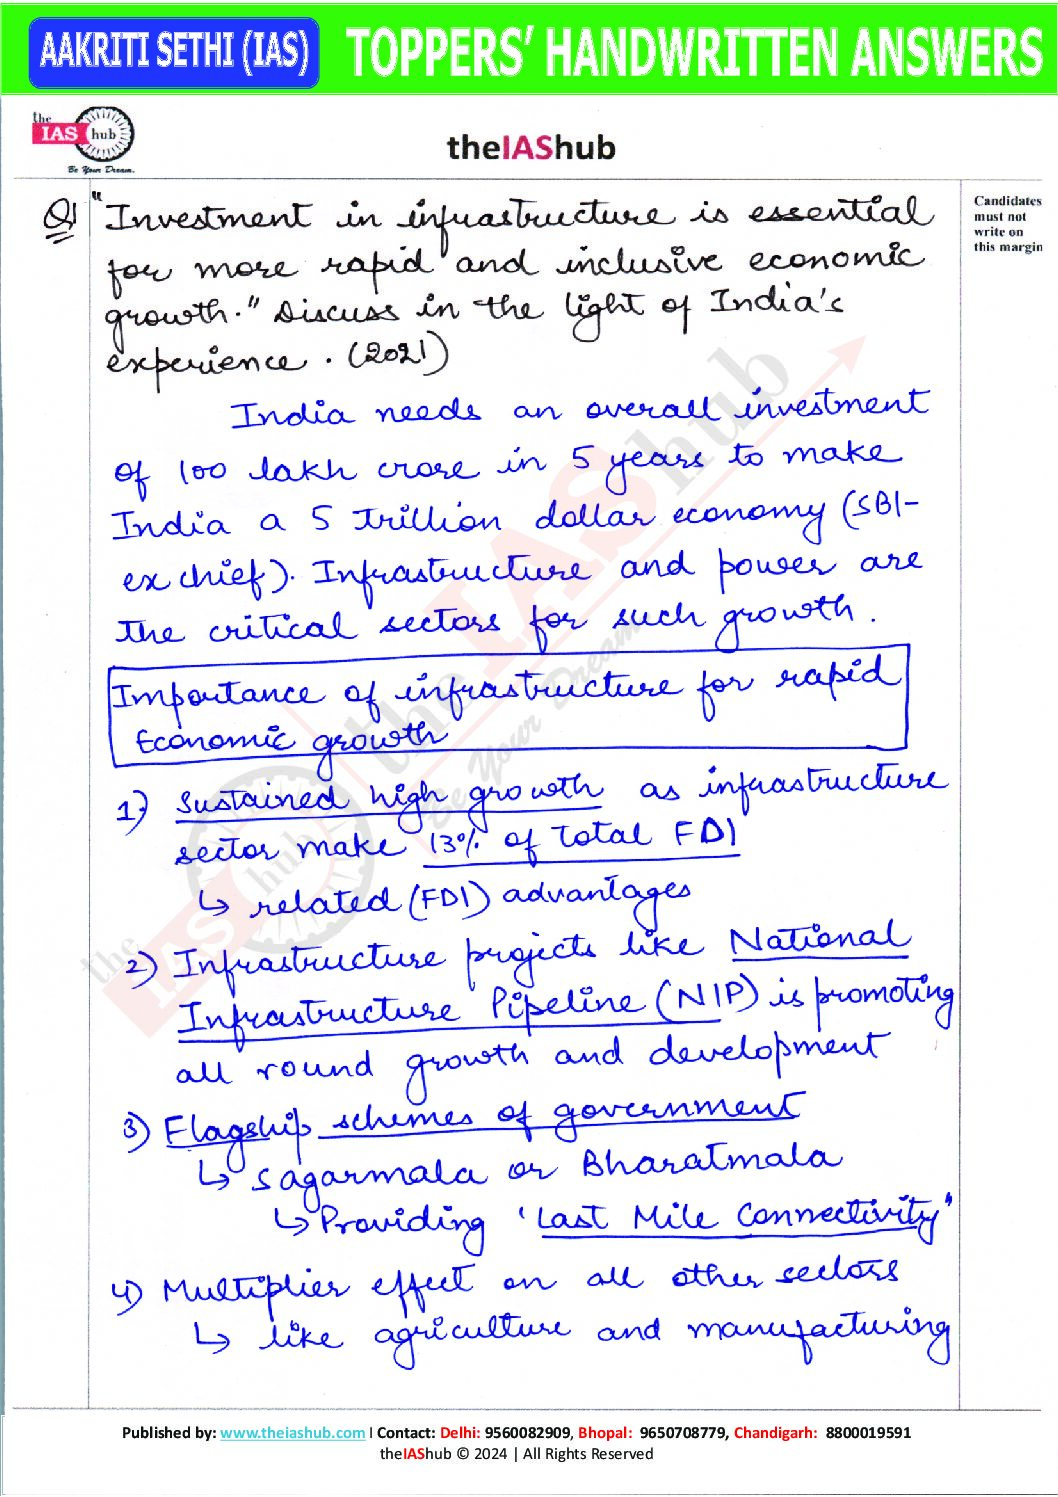 AAKRITI SETHI (IAS) TOPPERS' HANDWRITTEN ANSWERS
the
IAS hub
Be Your Dream.
theIAShub
Candidates
must not
write on
this margin
Q1 "Investment in infrastructure is essential
for more rapid and inclusive economic
growth." Discuss in the light of India's
experience. (2021)
India needs an overall investment
of 100 lakh crore in 5 years to make
India a 5 trillion dollar economy (SBI-
ex chief). Infrastructure and power are
the critical sectors for such growth.
Importance of infrastructure for rapid
Economic growth
1) Sustained high growth as infrastructure
sector make 13% of total FDI
↳ related (FDI) advantages
2) Infrastructure projects like National
Infrastructure Pipeline (NIP) is promoting
all round growth and development
3) Flagship schemes of government
↳ Sagarmala or Bharatmala
↳ Providing 'Last Mile Connectivity"
4) Multiplier effect on all other sectors
↳ like agriculture and manufacturing
the IAS hub
Be Your Dream
Published by: www.theiashub.com l Contact: Delhi: 9560082909, Bhopal: 9650708779, Chandigarh: 8800019591
theIAShub © 2024 | All Rights Reserved